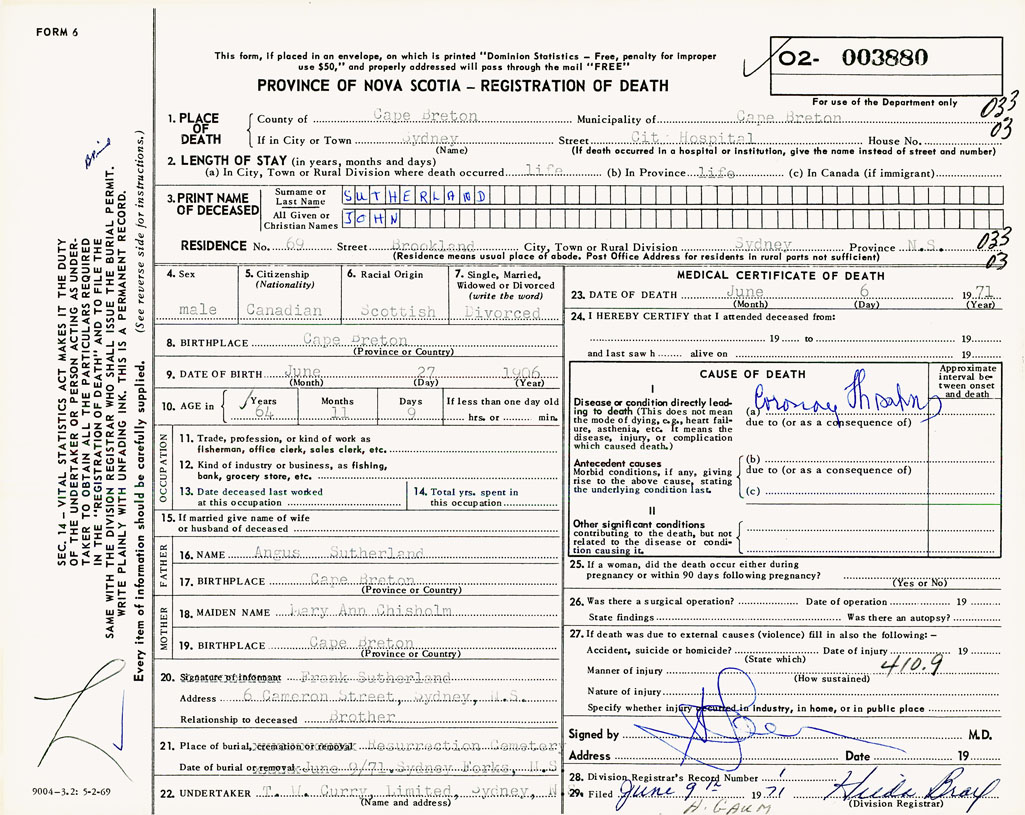 FORM 6
This form, if placed in an envelope, on which is printed "Dominion Statistics – Free, penalty for improper
use $50," and properly addressed will pass through the mail "FREE"
PROVINCE OF NOVA SCOTIA – REGISTRATION OF DEATH
02- 003880
For use of the Department only
033
03
1. PLACE OF DEATH
County of Cape Breton Municipality of Cape Breton
If in City or Town Sydney Street Cit Hospital House No.
(Name) (If death occurred in a hospital or institution, give the name instead of street and number)
2. LENGTH OF STAY (in years, months and days)
(a) In City, Town or Rural Division where death occurred life (b) In Province life (c) In Canada (if immigrant)
3. PRINT NAME OF DECEASED
Surname or Last Name SUTHERLAND
All Given or Christian Names JOHN
RESIDENCE No. 69 Street Brookland City, Town or Rural Division Sydney Province N.S.
(Residence means usual place of abode. Post Office Address for residents in rural parts not sufficient)
033
03
4. Sex
male
5. Citizenship
(Nationality)
Canadian
6. Racial Origin
Scottish
7. Single, Married,
Widowed or Divorced
(write the word)
Divorced
8. BIRTHPLACE Cape Breton
(Province or Country)
9. DATE OF BIRTH June 27 1906
(Month) (Day) (Year)
10. AGE in
Years Months Days If less than one day old
64 11 9 hrs. or min.
OCCUPATION
11. Trade, profession, or kind of work as
fisherman, office clerk, sales clerk, etc.
12. Kind of industry or business, as fishing,
bank, grocery store, etc.
13. Date deceased last worked
at this occupation
14. Total yrs. spent in
this occupation
15. If married give name of wife
or husband of deceased
FATHER
16. NAME Angus Sutherland
17. BIRTHPLACE Cape Breton
(Province or Country)
MOTHER
18. MAIDEN NAME Mary Ann Chisholm
19. BIRTHPLACE Cape Breton
(Province or Country)
20. Signature of informant Frank Sutherland
Address 6 Cameron Street, Sydney, N.S.
Relationship to deceased Brother
21. Place of burial, cremation or removal Resurrection Cemetery
Date of burial or removal June 9/71 Sydney Forks, N.S
22. UNDERTAKER T. W. Curry, Limited, Sydney, N
(Name and address)
MEDICAL CERTIFICATE OF DEATH
23. DATE OF DEATH June 6 1971
(Month) (Day) (Year)
24. I HEREBY CERTIFY that I attended deceased from:
19 to 19
and last saw h alive on 19
CAUSE OF DEATH
Approximate
interval be-
tween onset
and death
I
Disease or condition directly lead-
ing to death (This does not mean
the mode of dying, e.g., heart fail-
ure, asthenia, etc. It means the
disease, injury, or complication
which caused death.)
(a) Coronary
due to (or as a consequence of)
Antecedent causes
Morbid conditions, if any, giving
rise to the above cause, stating
the underlying condition last.
(b)
due to (or as a consequence of)
(c)
II
Other significant conditions
contributing to the death, but not
related to the disease or condi-
tion causing it.
25. If a woman, did the death occur either during
pregnancy or within 90 days following pregnancy?
(Yes or No)
26. Was there a surgical operation? Date of operation 19
State findings Was there an autopsy?
27. If death was due to external causes (violence) fill in also the following: –
Accident, suicide or homicide? Date of injury 19
(State which)
410.9
Manner of injury
(How sustained)
Nature of injury
Specify whether injury occurred in industry, in home, or in public place
Signed by M.D.
Address Date 19
28. Division Registrar's Record Number 1
29. Filed June 9th 1971 Hilda Bray
(Division Registrar)
H. GAUM
SEC. 14 – VITAL STATISTICS ACT MAKES IT THE DUTY
OF THE UNDERTAKER OR PERSON ACTING AS UNDER-
TAKER TO OBTAIN ALL THE PARTICULARS REQUIRED
IN THE "REGISTRATION OF DEATH" AND TO FILE THE
SAME WITH THE DIVISION REGISTRAR WHO SHALL ISSUE THE BURIAL PERMIT.
WRITE PLAINLY WITH UNFADING INK. THIS IS A PERMANENT RECORD.
Every item of information should be carefully supplied. (See reverse side for instructions.)
9004-3.2: 5-2-69